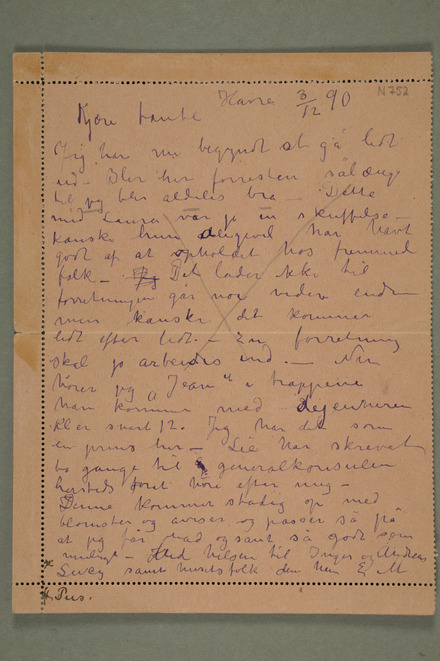 N 752
Havre 3/12 90
Kjære tante
Jeg har nu begyndt at gå lidt
ud – Blir her forresten sålænge
til jeg blir aldeles bra – Dette
med Laura var jo en skuffelse –
kanske hun alligevel har havt
godt af at opholdet hos fremmed
folk – Det lader ikke til
forretningen går noe videre endnu
men kanske det kommer
lidt efter lidt. – En forretning
skal jo arbeides ind. – Nu
hører jeg „Jean" i trappene
han kommer med dejeuneren
Kl er snart 12. Jeg har det som
en prins her – Lie har skrevet
to gange til generalkonsulen
hersteds foret høre efter mig –
Denne kommer stadig op med
blomster og aviser og passer så på
at jeg får mad og sånt så godt som
muligt – hilsen til Inger og Andreas
samt husets folk din hen E M
Pus.